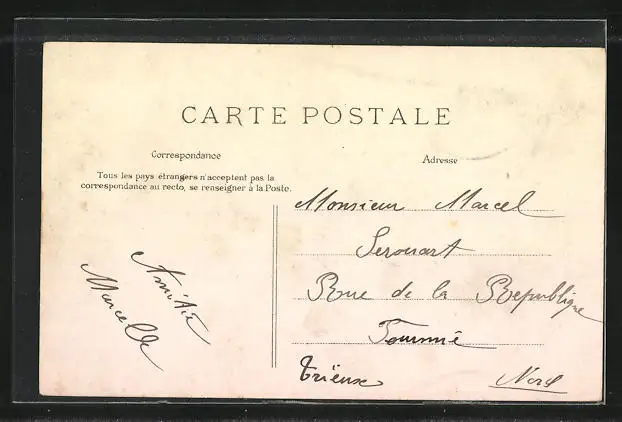 CARTE POSTALE
Correspondance
Tous les pays étrangers n'acceptent pas la
correspondance au recto, se renseigner à la Poste.
Adresse
Monsieur Marcel
Rue de la Republique
Nord
Amitié
Marcelle